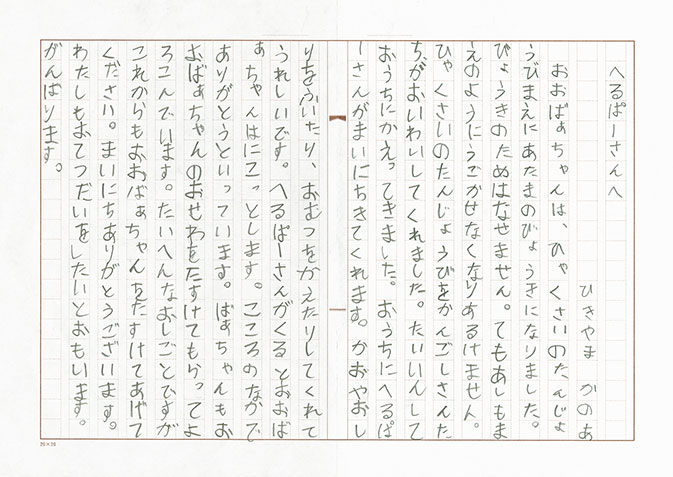 へるぱーさんへ
ひきやま かのあ
おおばぁちゃんは、ひゃくさいのたんじょ
うびまえにあたまのびょうきになりました。
びょうきのためはなせません。てもあしもま
えのようにうごかせなくなりあるけません。
ひゃくさいのたんじょうびをかんごしさんた
ちがおいわいしてくれました。たいいんして
おうちにかえってきました。おうちにへるぱ
ーさんがまいにちきてくれます。かおやおし
りをふいたり、おむつをかえたりしてくれて
うれしいです。へるぱーさんがくるとおおば
ぁちゃんはにこっとします。こころのなかで
ありがとうといっています。ばぁちゃんもお
おばぁちゃんのおせわをたすけてもらってよ
ろこんでいます。たいへんなおしごとですが
これからもおおばぁちゃんをたすけてあげて
ください。まいにちありがとうございます。
わたしもおてつだいをしたいとおもいます。
がんばります。
20×20